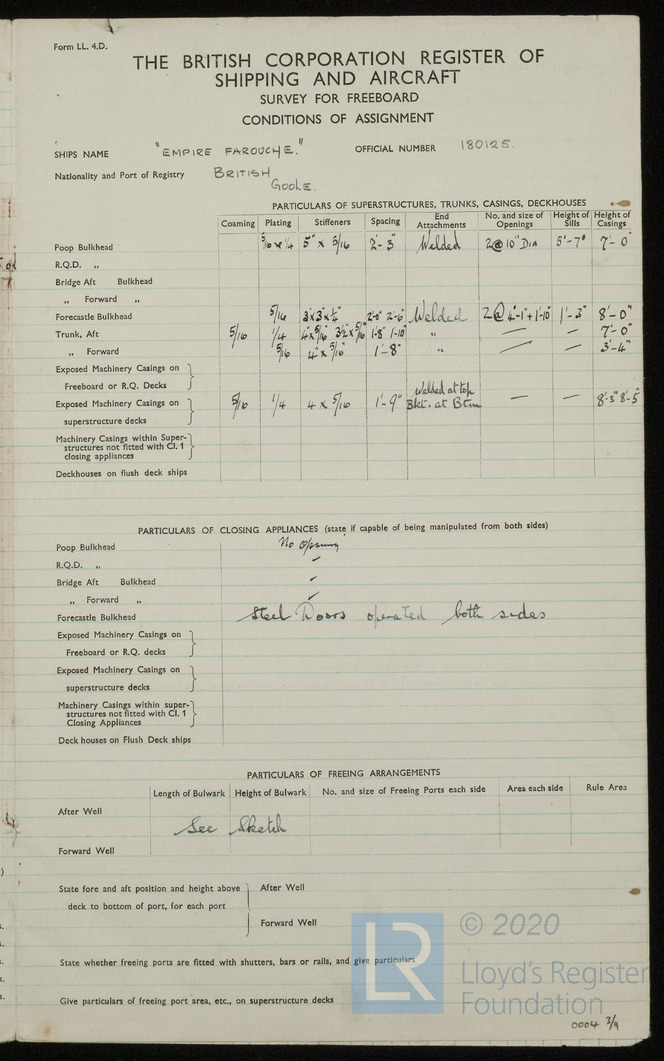 Form LL. 4.D.
THE BRITISH CORPORATION REGISTER OF
SHIPPING AND AIRCRAFT
SURVEY FOR FREEBOARD
CONDITIONS OF ASSIGNMENT
SHIPS NAME "EMPIRE FAROUCHE." OFFICIAL NUMBER 180125.
Nationality and Port of Registry BRITISH
GOOLE.
PARTICULARS OF SUPERSTRUCTURES, TRUNKS, CASINGS, DECKHOUSES
Coaming Plating Stiffeners Spacing End Attachments No. and size of Openings Height of Sills Height of Casings
Poop Bulkhead 5/16 x 1/4 5" x 5/16 2'-3" Welded 2@10" DIA 5'-7" 7'-0"
R.Q.D. „
Bridge Aft Bulkhead
„ Forward „
Forecastle Bulkhead 5/16 3"x3"x1/4" 2'-0" 2'-6" Welded 2@4'-1"+1'-10" 1'-3" 8'-0"
Trunk, Aft 5/16 1/4 4"x5/16" 3½"x5/16 1'-8" 1'-10" „ — — 7'-0"
„ Forward 5/16 4"x5/16" 1'-8" „ — — 3'-4"
Exposed Machinery Casings on
Freeboard or R.Q. Decks
Welded at top
Exposed Machinery Casings on 5/16 1/4 4 x 5/16 1'-9" Bkt. at Btm — — 8'-3" 8'-5"
superstructure decks
Machinery Casings within Super-
structures not fitted with Cl. 1
closing appliances
Deckhouses on flush deck ships
PARTICULARS OF CLOSING APPLIANCES (state if capable of being manipulated from both sides)
Poop Bulkhead No opening
R.Q.D. „
Bridge Aft Bulkhead
„ Forward „
Forecastle Bulkhead Steel Doors operated both sides
Exposed Machinery Casings on
Freeboard or R.Q. decks
Exposed Machinery Casings on
superstructure decks
Machinery Casings within super-
structures not fitted with Cl. 1
Closing Appliances
Deck houses on Flush Deck ships
PARTICULARS OF FREEING ARRANGEMENTS
Length of Bulwark Height of Bulwark No. and size of Freeing Ports each side Area each side Rule Area
After Well
See Sketch
Forward Well
State fore and aft position and height above After Well
deck to bottom of port, for each port
Forward Well
State whether freeing ports are fitted with shutters, bars or rails, and give particulars
Give particulars of freeing port area, etc., on superstructure decks
LR
© 2020
Lloyd's Register
Foundation
0004 3/9